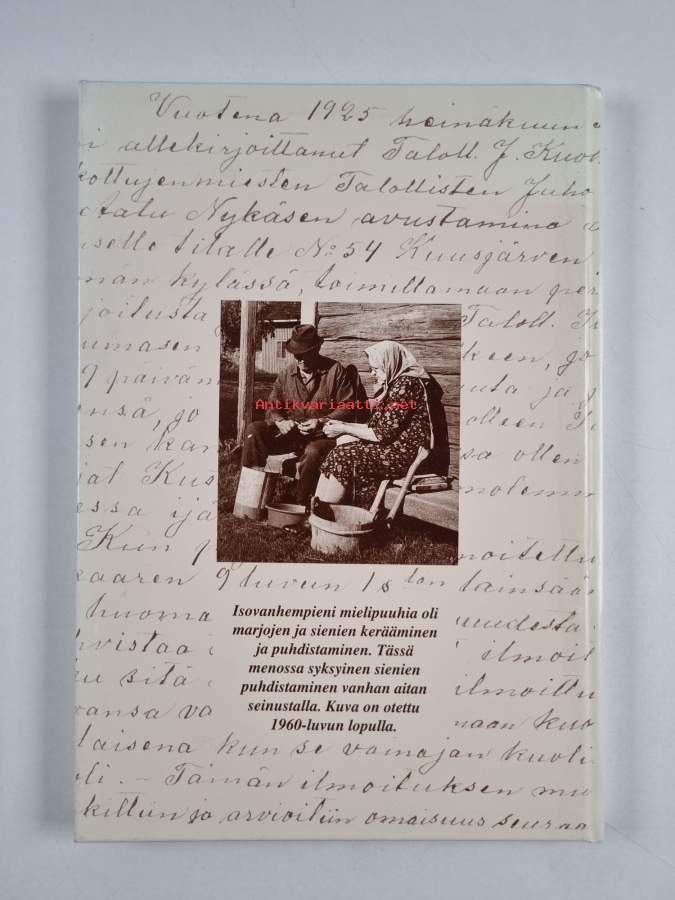 Vuotena 1925 heinäkuun
allekirjoittanut Taloll. J. Kuo
kottujenmiesten Talollisten Juho
Aatu Nykäsen avustamina
sello tilalle No 54 Kuusjärven
män kylässä, toimittamaan per
joitusta Taloll. Ju
umasen keen, jo
9 päivän uuta ja p
ensä, jo olleen Tu
sen kan sa ollen
jat Kus molemm
essa ijä
Antikvariaatti.net
Kun p moitettu
kaaren 9 luvun 1 s ton lainsää
huoma uudesta
hvistaa ilmoit
uu sitä ilmoittu
vansa va maan kuo
laisena kun se vainajan kuoli
li. - Tämän ilmoituksen mu
kittiin ja arvioitiin omaisuus seuraa
Isovanhempieni mielipuuhia oli
marjojen ja sienien kerääminen
ja puhdistaminen. Tässä
menossa syksyinen sienien
puhdistaminen vanhan aitan
seinustalla. Kuva on otettu
1960-luvun lopulla.